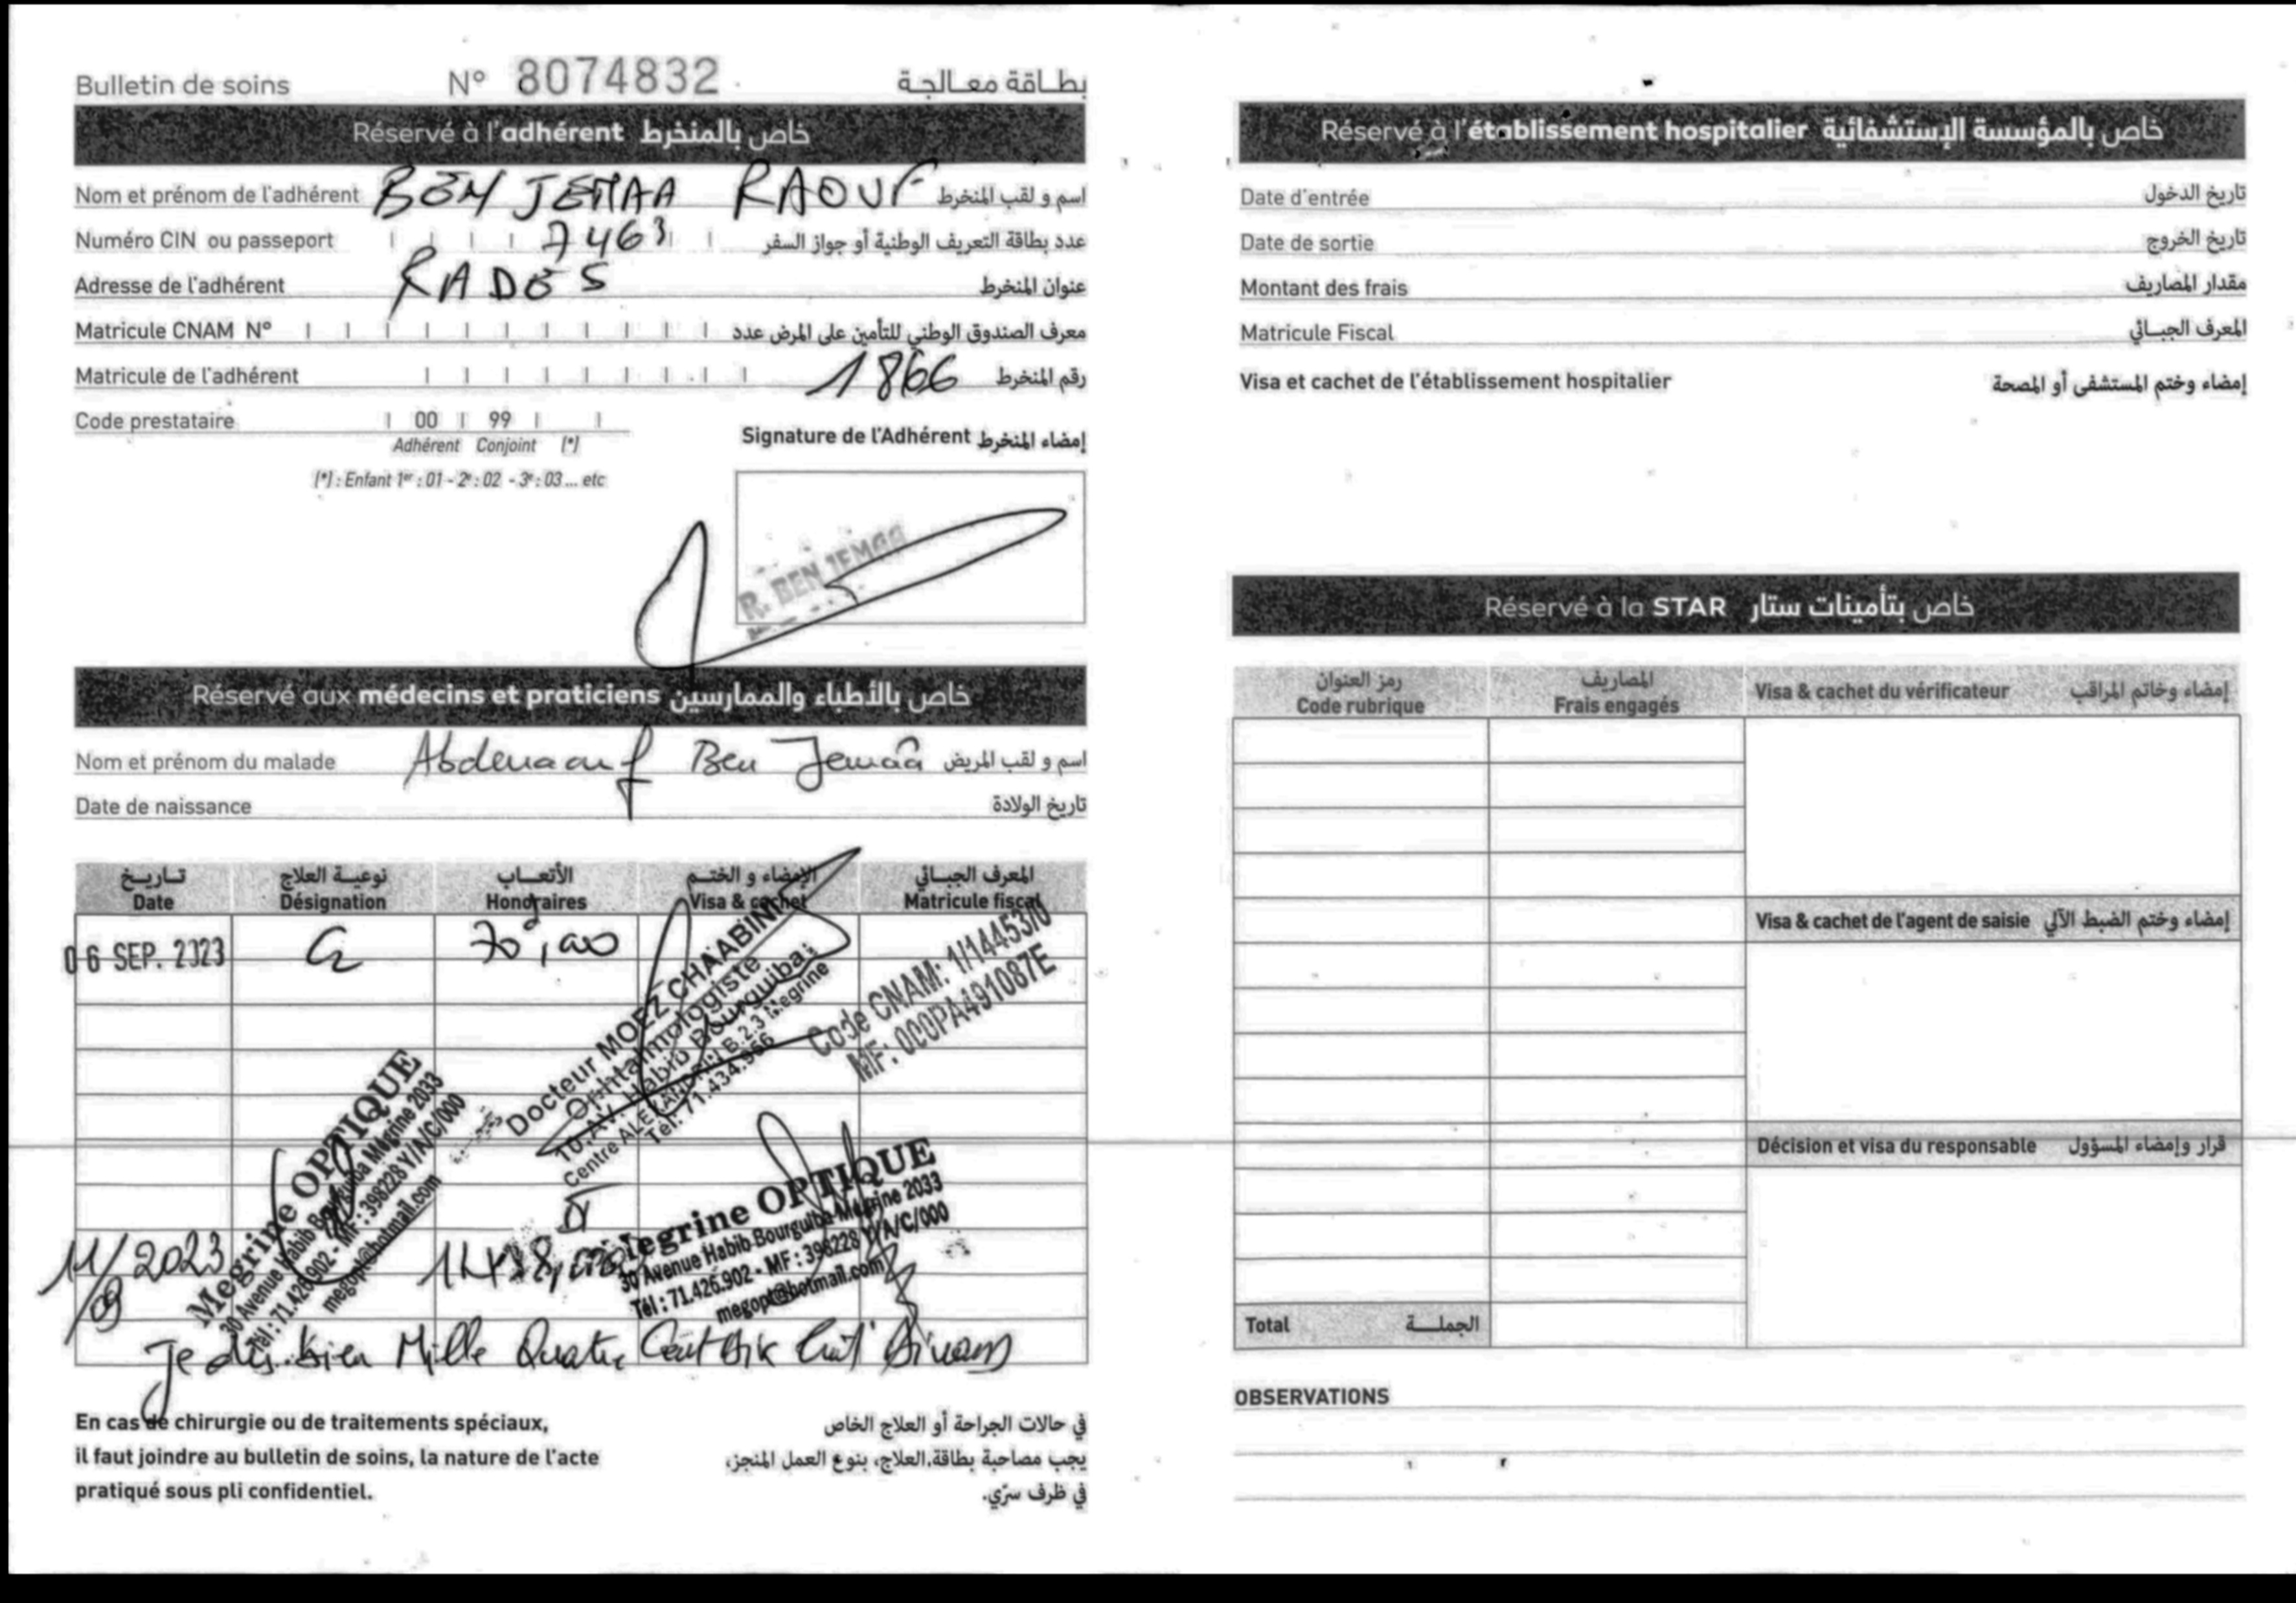 Bulletin de soins N° 8074832 بطاقة معالجة
Réservé à l'adhérent خاص بالمنخرط
Nom et prénom de l'adhérent BEN JEMAA RAOUF اسم و لقب المنخرط
Numéro CIN ou passeport 7463 عدد بطاقة التعريف الوطنية أو جواز السفر
Adresse de l'adhérent RADES عنوان المنخرط
Matricule CNAM N° معرف الصندوق الوطني للتأمين على المرض عدد
Matricule de l'adhérent 1866 رقم المنخرط
Code prestataire 00 99
Adhérent Conjoint (*)
(*) : Enfant 1er : 01 - 2e : 02 - 3e : 03 ... etc
Signature de l'Adhérent إمضاء المنخرط
R. BEN JEMAA
Réservé aux médecins et praticiens خاص بالأطباء والممارسين
Nom et prénom du malade Abderraouf Ben Jemaâ اسم و لقب المريض
Date de naissance تاريخ الولادة
تاريخ نوعية العلاج الأتعاب الإمضاء و الختم المعرف الجبائي
Date Désignation Honoraires Visa & cachet Matricule fiscal
06 SEP. 2023 C2
Docteur MOEZ CHAABINI
Ophtalmologiste
10, AV. Habib Bourguiba
Centre ALEXANDRIN B.2.3 Megrine
Tél: 71.434.956
Code CNAM: 1/14453/0
MF: 000PA491087E
Megrine OPTIQUE
30 Avenue Habib Bourguiba Mégrine 2033
Tél : 71.426.902 - MF : 398228 Y/A/C/000
megopt@hotmail.com
11/09/2023 1418,000
Megrine OPTIQUE
30 Avenue Habib Bourguiba Mégrine 2033
Tél : 71.426.902 - MF : 398228 Y/A/C/000
megopt@hotmail.com
Je dis bien Mille Quatre Cent Dix huit Dinars
En cas de chirurgie ou de traitements spéciaux,
il faut joindre au bulletin de soins, la nature de l'acte
pratiqué sous pli confidentiel.
في حالات الجراحة أو العلاج الخاص
يجب مصاحبة بطاقة العلاج، بنوع العمل المنجز،
في ظرف سرّي.
Réservé à l'établissement hospitalier خاص بالمؤسسة الإستشفائية
Date d'entrée تاريخ الدخول
Date de sortie تاريخ الخروج
Montant des frais مقدار المصاريف
Matricule Fiscal المعرف الجبائي
Visa et cachet de l'établissement hospitalier إمضاء وختم المستشفى أو المصحة
Réservé à la STAR خاص بتأمينات ستار
رمز العنوان المصاريف
Code rubrique Frais engagés Visa & cachet du vérificateur إمضاء وخاتم المراقب
Visa & cachet de l'agent de saisie إمضاء وختم الضبط الآلي
Décision et visa du responsable قرار وإمضاء المسؤول
Total الجملة
OBSERVATIONS